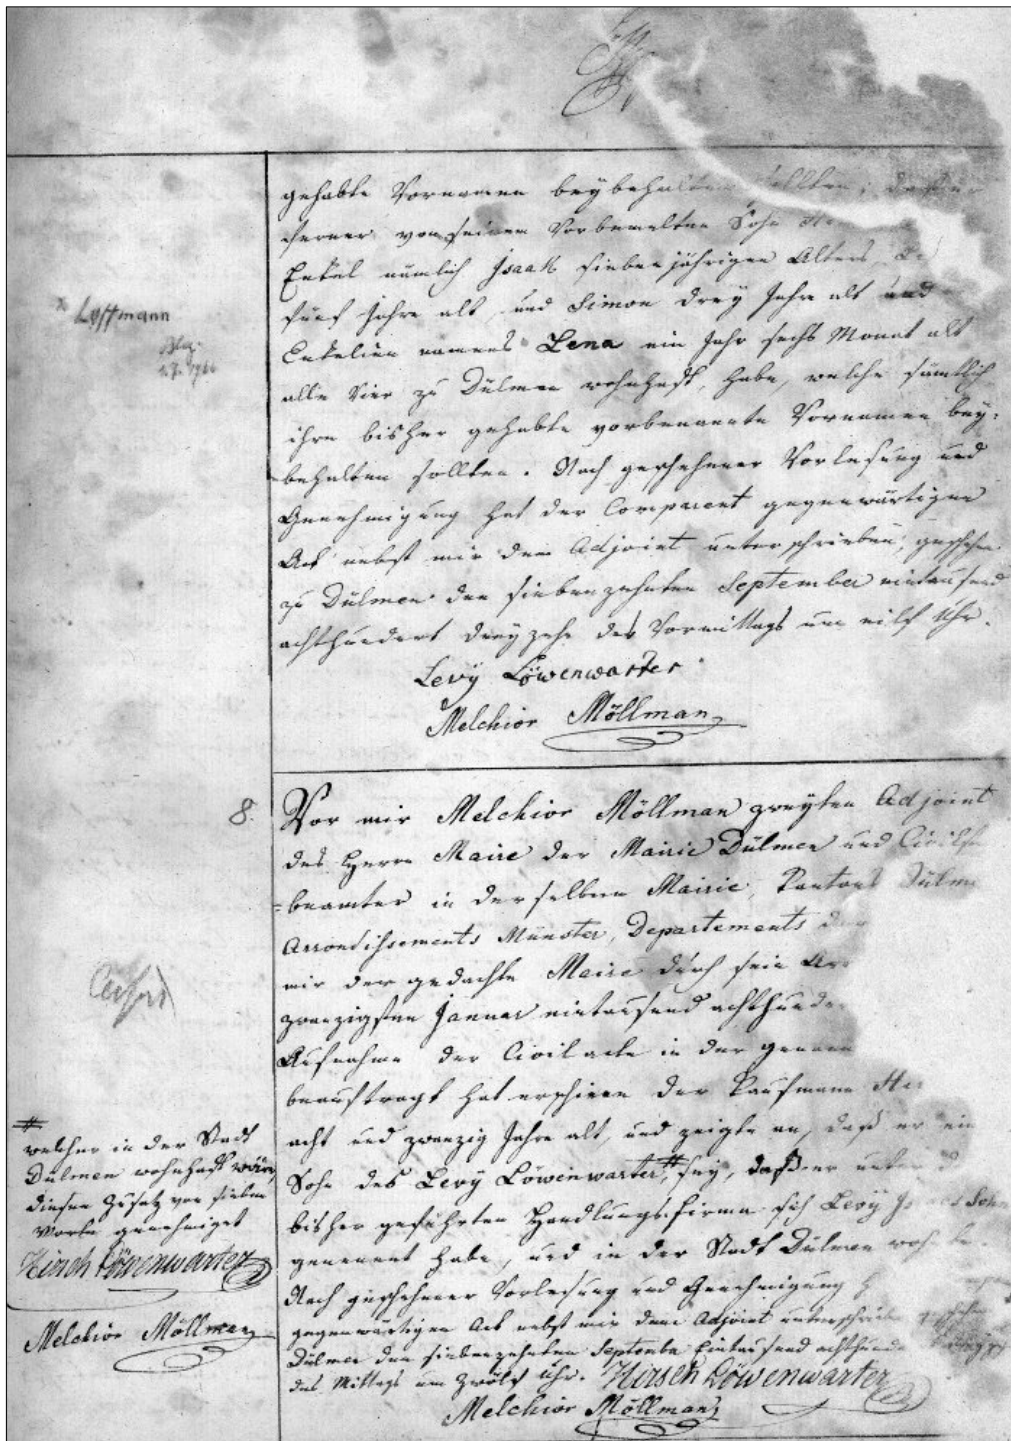 gehabte Vornamen beybehalten sollten; daß er
ferner von seinem Vorbemelten Sohn
Enkel nämlich Isaak siebenjährigen Alters
fünf Jahre alt, und Simon drey Jahre alt und
Enkelien namens Lena ein Jahr sechs Monat alt
alle Vier zu Dülmen wohnhaft, habe, welche sämtlich
ihre bisher gehabte vorbenannte Vornamen bey-
behalten sollten. Nach geschehener Vorlesung und
Genehmigung hat der Comparent gegenwärtigen
Act nebst mir dem Adjoint unterschrieben, geschehen
zu Dülmen den siebenzehnten September eintausend
achthundert dreyzehn des Vormittags um eilf Uhr.
Levÿ Löwenwarter
Melchior Möllman
8. Vor mir Melchior Möllman zweyten Adjoint
des Herrn Maire der Mairie Dülmen und
beamter in derselben Mairie, Kantons Dülm
Arrondissements Münster, Departements der
mir der gedachte Maire durch sein
zwanzigsten Januar eintausend achthunder
Aufnahme der Civilacte in der genan
beauftragt hat erschien der Kaufmann
acht und zwanzig Jahre alt, und zeigte an, daß er ein
Sohn des Levy Löwenwarter # sey, daß er unter d
bisher geführten Handlungsfirma sich Levÿ
genennt habe, und in der Stadt Dülmen
Nach geschehener Vorlesung und Genehmigung
gegenwärtigen Act nebst mir dem Adjoint unterschrieben geschehen
Dülmen den siebenzehnten September Eintausend achthunder
des Mittags um zwölf Uhr. Hirsch Löwenwarter
Melchior Möllman
#
welcher in der Stadt
Dülmen wohnhaft wäre,
diesen Zusatz von sieben
Worte genehmiget
Hirsch Löwenwarter
Melchior Möllman